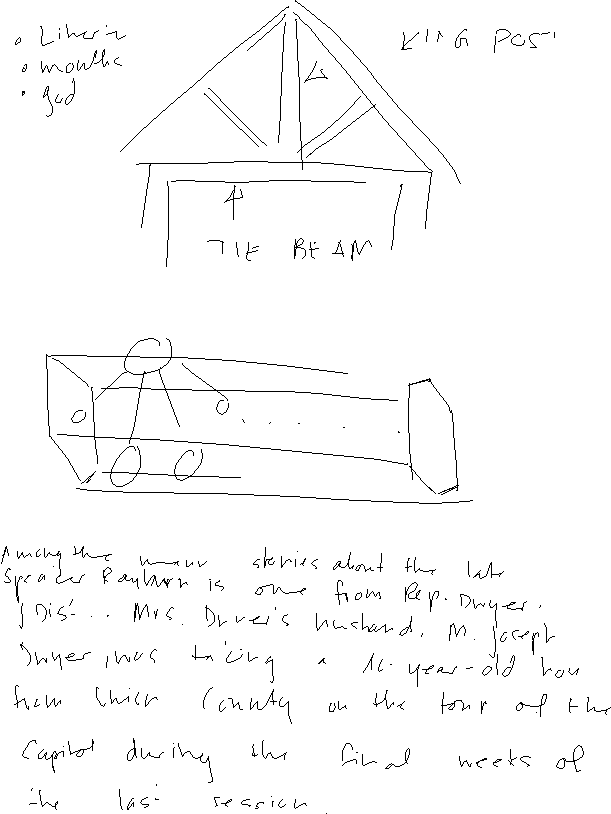 • Liberia
• months
• god
KING POST
TIE BEAM
Among the many stories about the late
Speaker Rayburn is one from Rep. Dwyer.
Mrs. Dwyer's husband, M. Joseph
Dwyer, was taking a 10-year-old boy
from Union County on the tour of the
Capitol during the final weeks of
the last session.